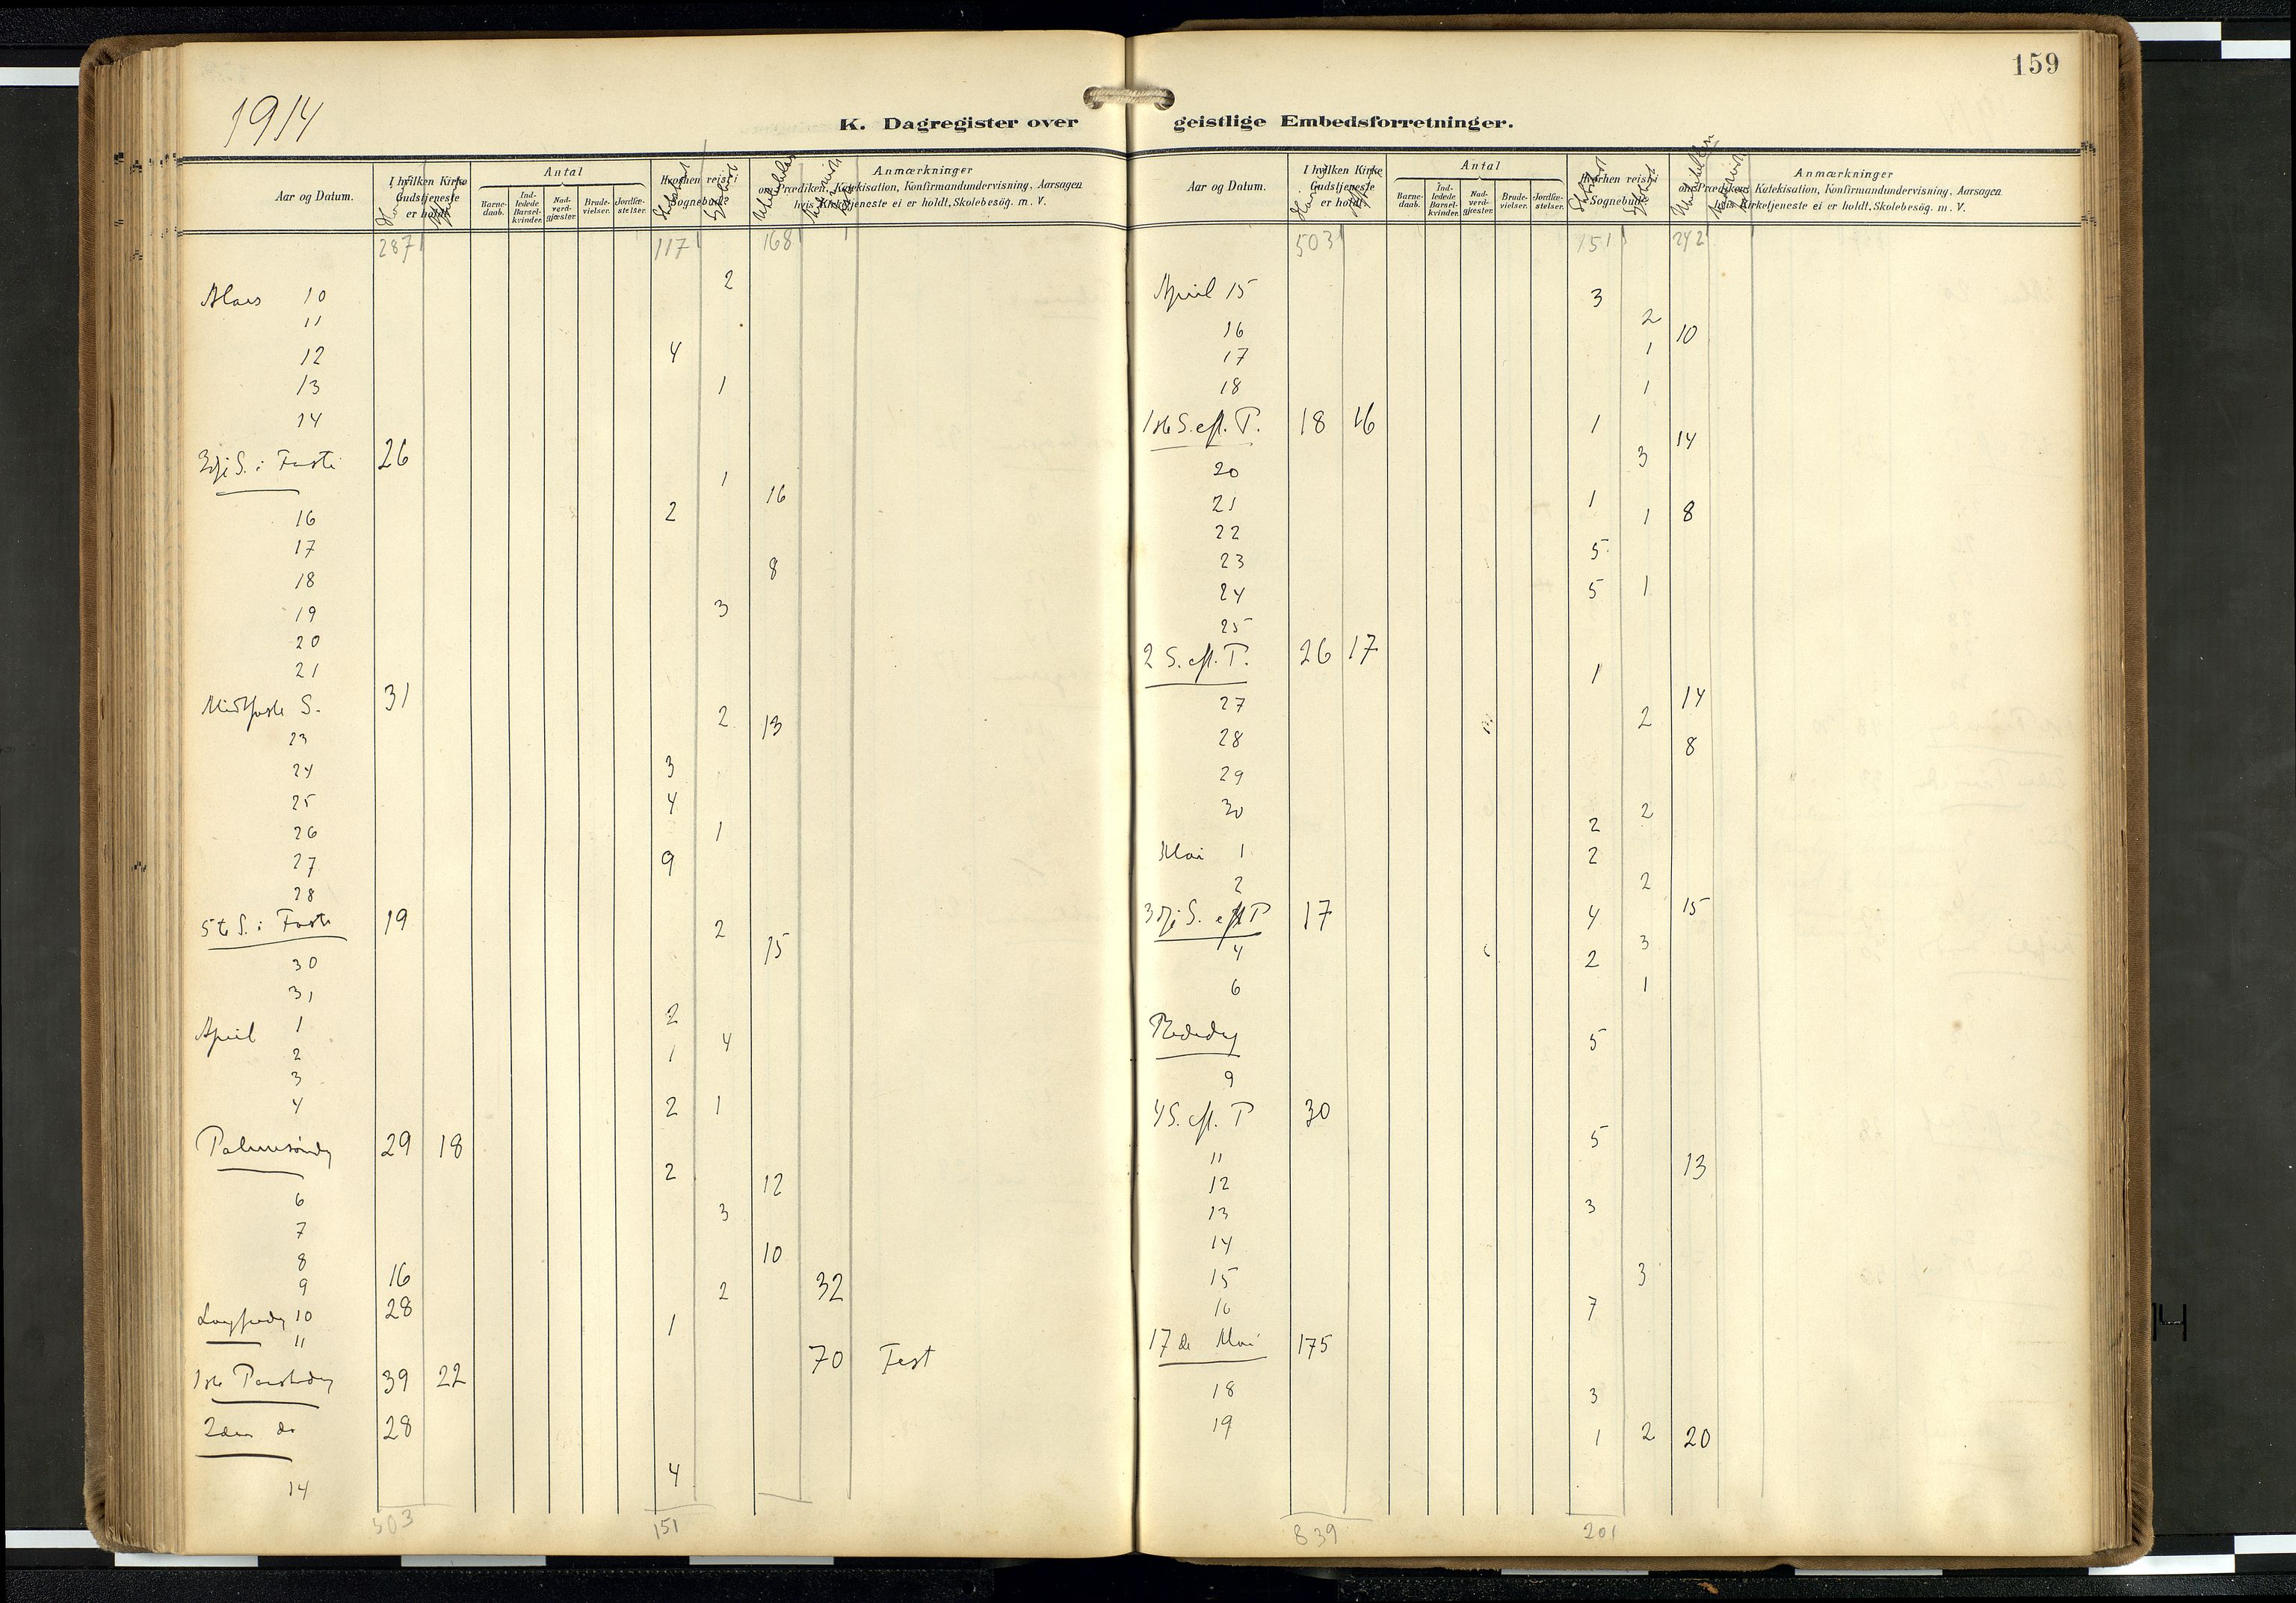 159
1914
K. Dagregister over geistlige Embedsforretninger.
Aar og Datum. I hvilken Kirke Gudstjeneste er holdt. Antal Barnedaab. Indledede Barselkvinder. Nadverdgjæster. Brudevielser. Jordfæstelser. Hvorhen reist i Sognebud. Anmærkninger om Prædiken, Katekisation, Konfirmandundervisning, Aarsagen hvis Kirketjeneste ei er holdt, Skolebesög. m. V.
287 117 168
2
Mars 10
11
12 4
13 1
14
3dje S. i Faste 26
1 16
16 2
17
18 8
19 3
20
21
Midfaste S. 31
2 13
23
24 3
25 4
26 1
27 9
28
5te S. i Faste 19 2
15
30
31
April 1 2
2 1 4
3
4 2 1
Palmesøndag 29 18
2 12
6
7 3
8 10
9 16 2 32
Langfredag 10 28
11 1
70 Fest
1ste Paaskedag 39 22
2den do 28
14 4
503 151
Aar og Datum. I hvilken Kirke Gudstjeneste er holdt. Antal Barnedaab. Indledede Barselkvinder. Nadverdgjæster. Brudevielser. Jordfæstelser. Hvorhen reist i Sognebud. Anmærkninger om Prædiken, Katekisation, Konfirmandundervisning, Aarsagen hvis Kirketjeneste ei er holdt, Skolebesög. m. V.
503 151 242
April 15 3
2
16 10
17 1
18 1
1ste S. eft. P. 18 16 1 14
3
20
21 1 1 8
22
23 5
24 5 1
25
2 S. eft. P. 26 17
1
27 14
2
28 8
29
30 2
2
Mai 1 2
2 2
3dje S. eft P 17 4 15
4 2 3
6 1
Bededag 5
9
4 S. eft. P 30
5
11 13
12
13 3
14
15 3
16 7
17de Mai 175
18 3
19 1 2 20
839 201